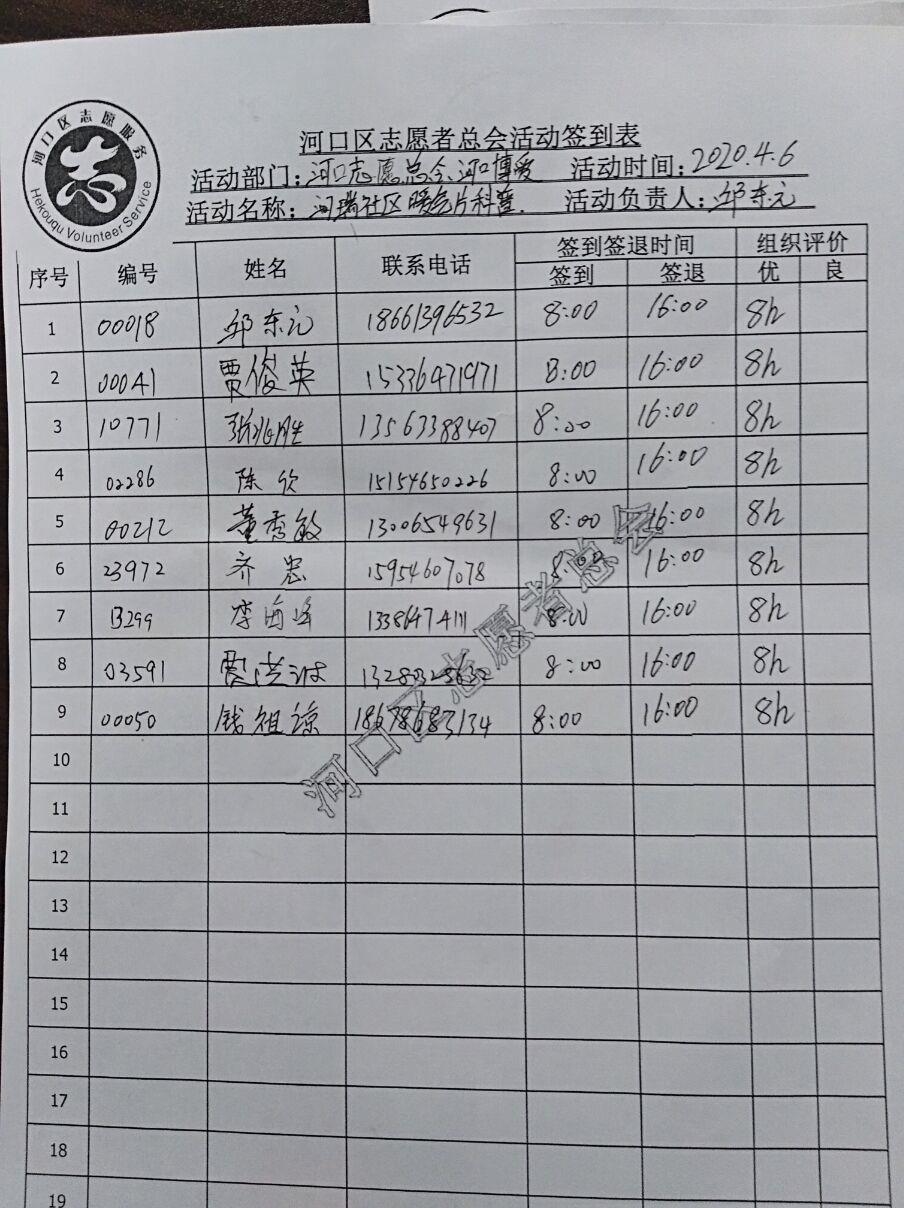 河口区志愿服务
志
Hekouqu Volunteer Service
河口区志愿者总会活动签到表
活动部门：河口志愿总会、河口博爱 活动时间：2020.4.6
活动名称：河瑞社区暖气片科普. 活动负责人：邱东元
序号 编号 姓名 联系电话 签到签退时间 组织评价
签到 签退 优 良
1 00018 邱东元 18661396532 8:00 16:00 8h
2 00041 贾俊英 15336471971 8:00 16:00 8h
3 10771 张兆胜 13563388407 8:00 16:00 8h
4 02286 陈欣 15154650226 8:00 16:00 8h
5 00212 董秀敏 13006549631 8:00 16:00 8h
6 23972 齐忠 15954607078 8:00 16:00 8h
7 13299 李海峰 13386474111 8:00 16:00 8h
8 03591 洪波 8:00 16:00 8h
9 00050 钱祖谅 18678683134 8:00 16:00 8h
10
11
12
13
14
15
16
17
18
19
河口区志愿者总会